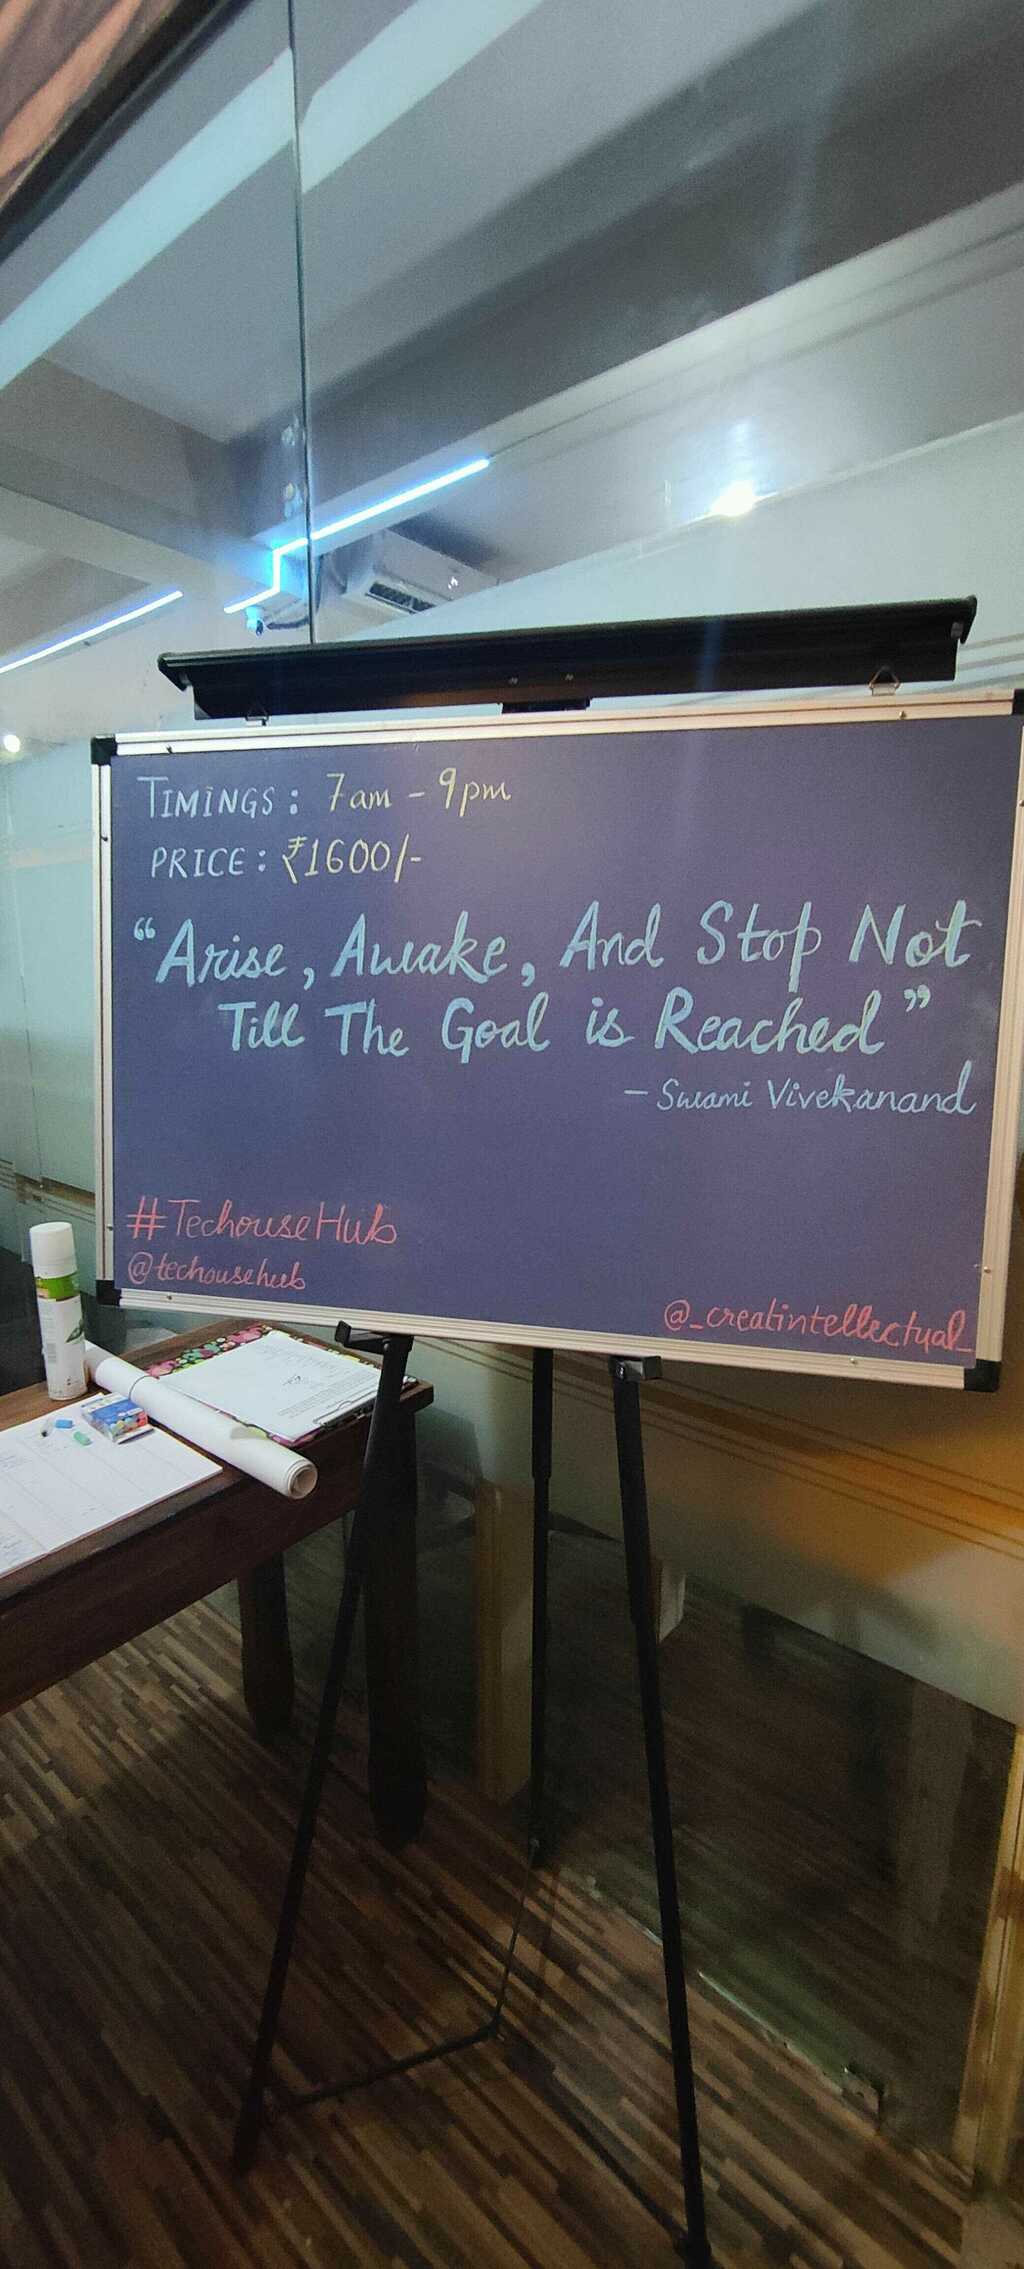 TIMINGS: 7am - 9pm
PRICE: ₹1600/-
“Arise, Awake, And Stop Not
Till The Goal is Reached”
- Swami Vivekanand
#TechouseHub
@techousehub
@_creatintellectual_